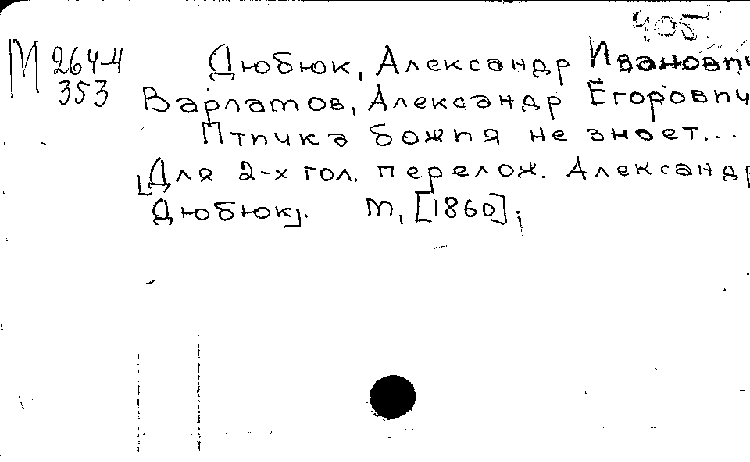 405
М 264-4
353
Дюбюк, Александр Иванович
Варламов, Александр Егорович
Птичка божия не знает...
[Для 2-х гол. перелож. Александр
Дюбюк]. М, [1860];